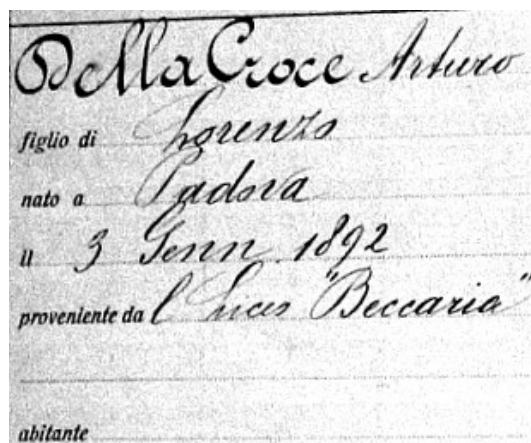 Della Croce Arturo
figlio di Lorenzo
nato a Padova
il 3 Genn. 1892
proveniente da l Liceo "Beccaria"
abitante